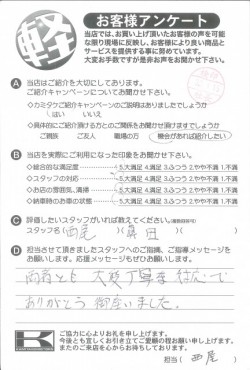 軽
お客様アンケート
当店では、お買い上げ頂いたお客様の声を可能
な限り現場に反映し、お客様により良い商品と
サービスを提供する事に努めています。
大変お手数ですが是非お声をお聞かせ下さい。
A 当店はご紹介を大切にしております。
ご紹介キャンペーンについてお聞かせ下さい。
◇カミタケご紹介キャンペーンのご説明はありましたでしょうか
はい いいえ
◇具体的にご紹介頂ける方とのご関係をお聞かせ頂けますでしょうか
ご親族 ご友人 職場の方 機会があれば紹介したい
B 当店を実際にご利用になった印象をお聞かせ下さい。
◇総合的な満足度 5.大満足 4.満足 3.ふつう 2.やや不満 1.不満
◇スタッフの対応 5.大満足 4.満足 3.ふつう 2.やや不満 1.不満
◇お店の雰囲気、清掃 5.大満足 4.満足 3.ふつう 2.やや不満 1.不満
◇納車時のお車の状態 5.大満足 4.満足 3.ふつう 2.やや不満 1.不満
C 評価したいスタッフがいれば教えてください。(複数回答可)
スタッフ名( 西尾 )( 森田 )( )
D 担当させて頂きましたスタッフへのご指摘、ご指導メッセージを
お願いします。応援メッセージもぜひお願いします。
両者とも 大変丁寧な対応で
ありがとう 御座いました。
K
ご協力に心よりお礼を申し上げます。
今後とも宜しくお引き立てご愛顧の程お願い申し上げます。
またのご来店を心からお待ちしております。
担当( 西尾 )